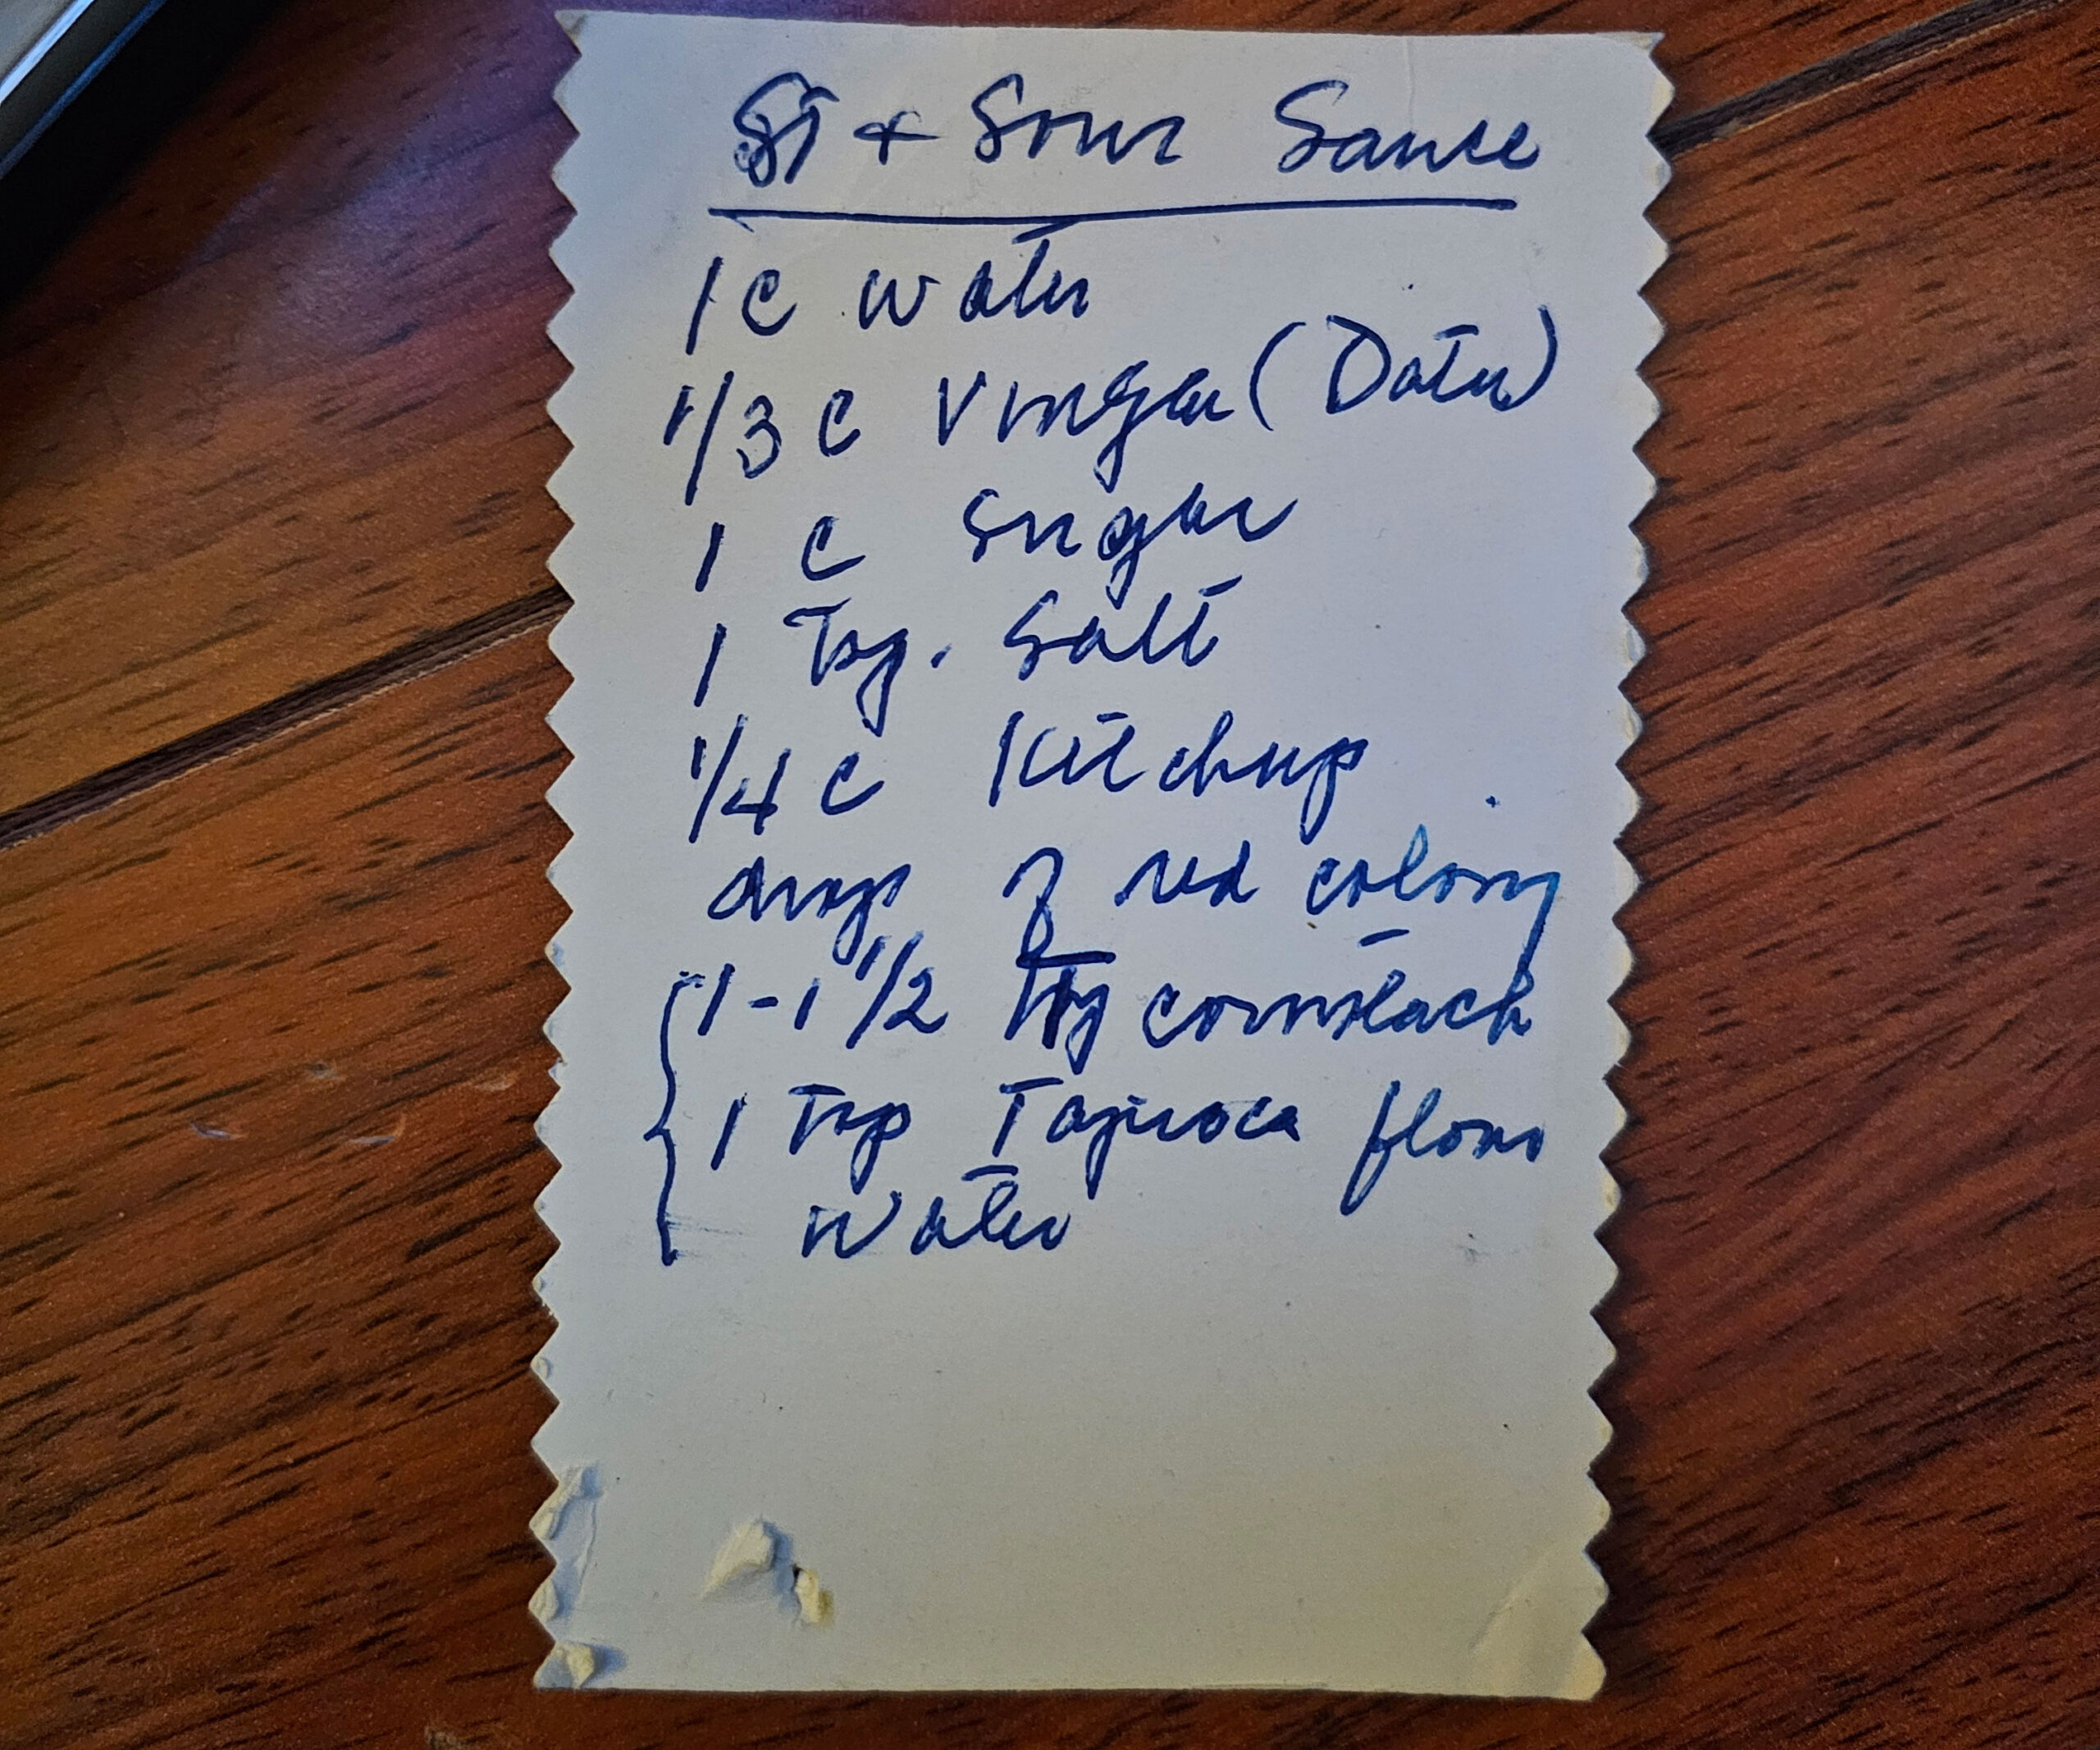 St + Sour Sauce
1 c water
1/3 c Vingar (Datu)
1 c sugar
1 Tsp. Salt
1/4 c Ketchup
drop of red coloring
1-1 1/2 Tsp cornstach
1 Tsp Tapioca flour
water